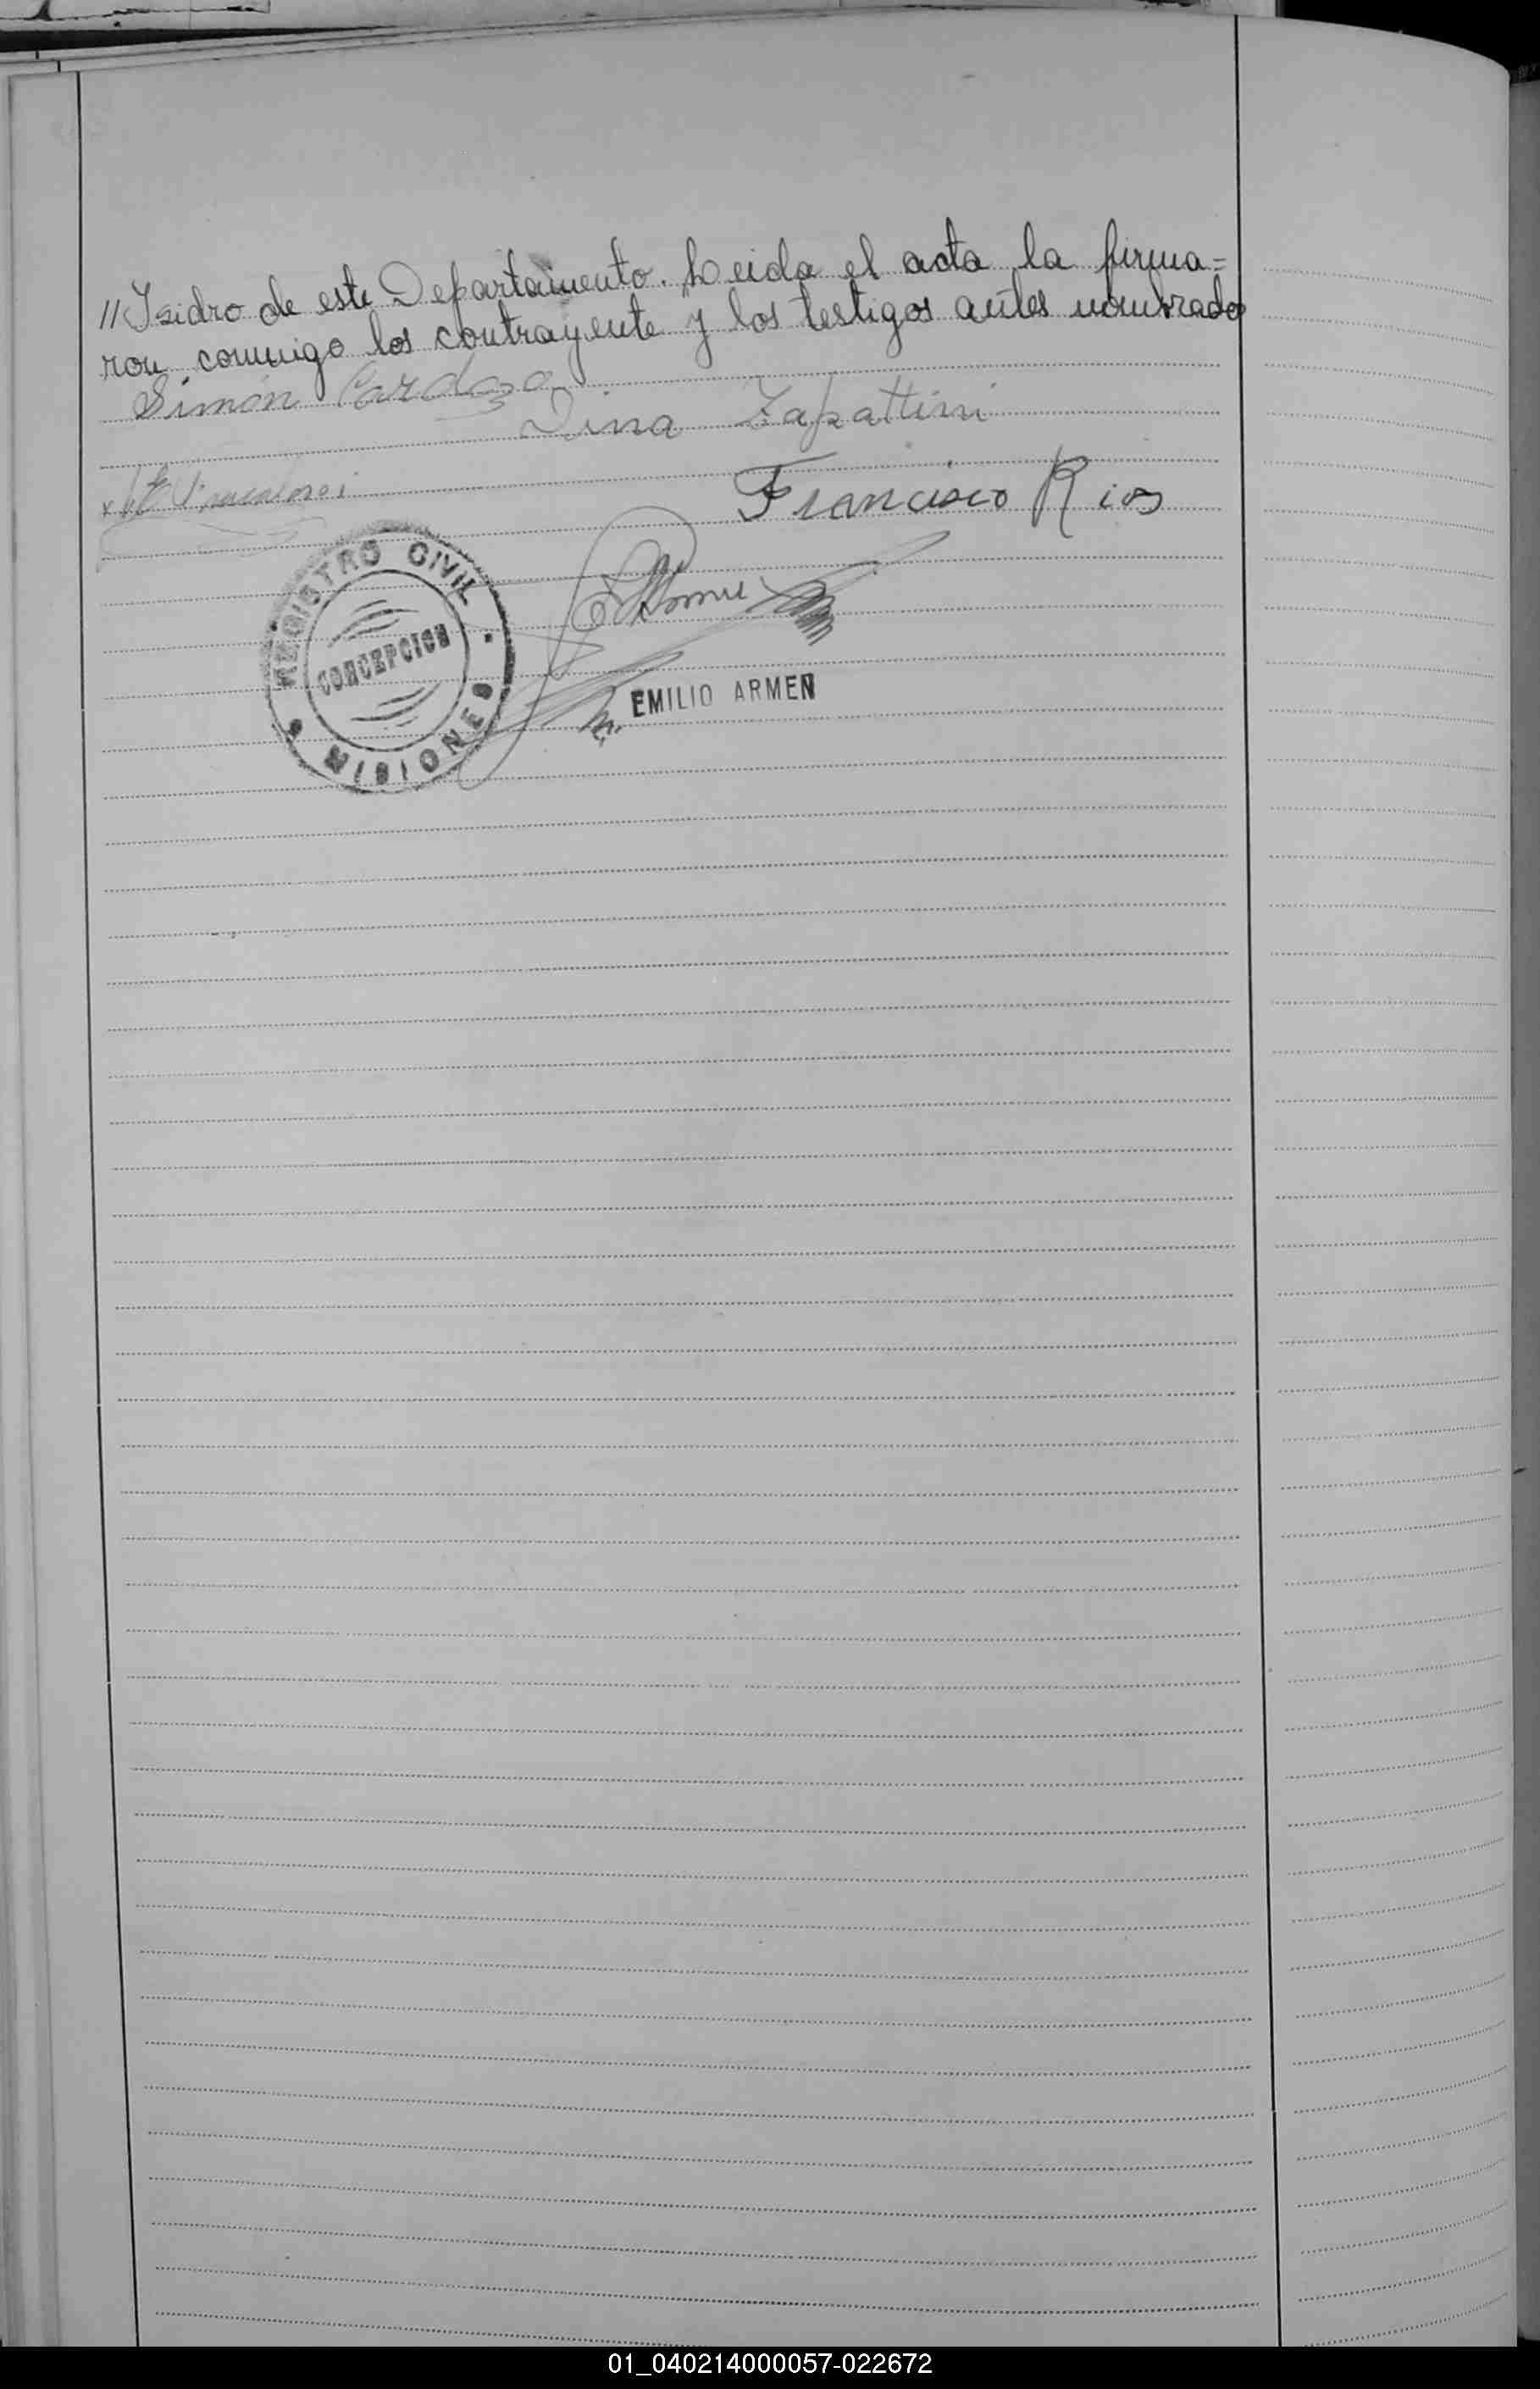 //Isidro de este Departamento. Leida el acta la firma=
ron conmigo los contrayente y los testigos antes nombrados
Simón Cardozo
Dina Zapattini
Francisco Rios
REGISTRO CIVIL
CONCEPCION
MISIONES
EMILIO ARMEN
01_040214000057-022672